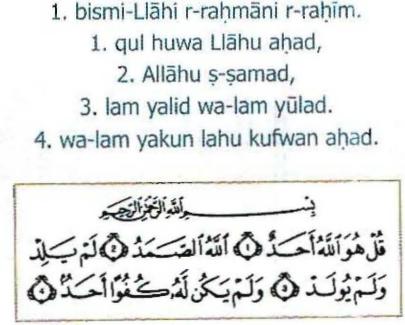 1. bismi-Llāhi r-raḥmāni r-raḥīm.
1. qul huwa Llāhu aḥad,
2. Allāhu ṣ-ṣamad,
3. lam yalid wa-lam yūlad.
4. wa-lam yakun lahu kufwan aḥad.
بِسْمِ اللَّهِ الرَّحْمَٰنِ الرَّحِيمِ
قُلْ هُوَ اللَّهُ أَحَدٌ ١ اللَّهُ الصَّمَدُ ٢ لَمْ يَلِدْ
وَلَمْ يُولَدْ ٣ وَلَمْ يَكُن لَّهُ كُفُوًا أَحَدٌ ٤